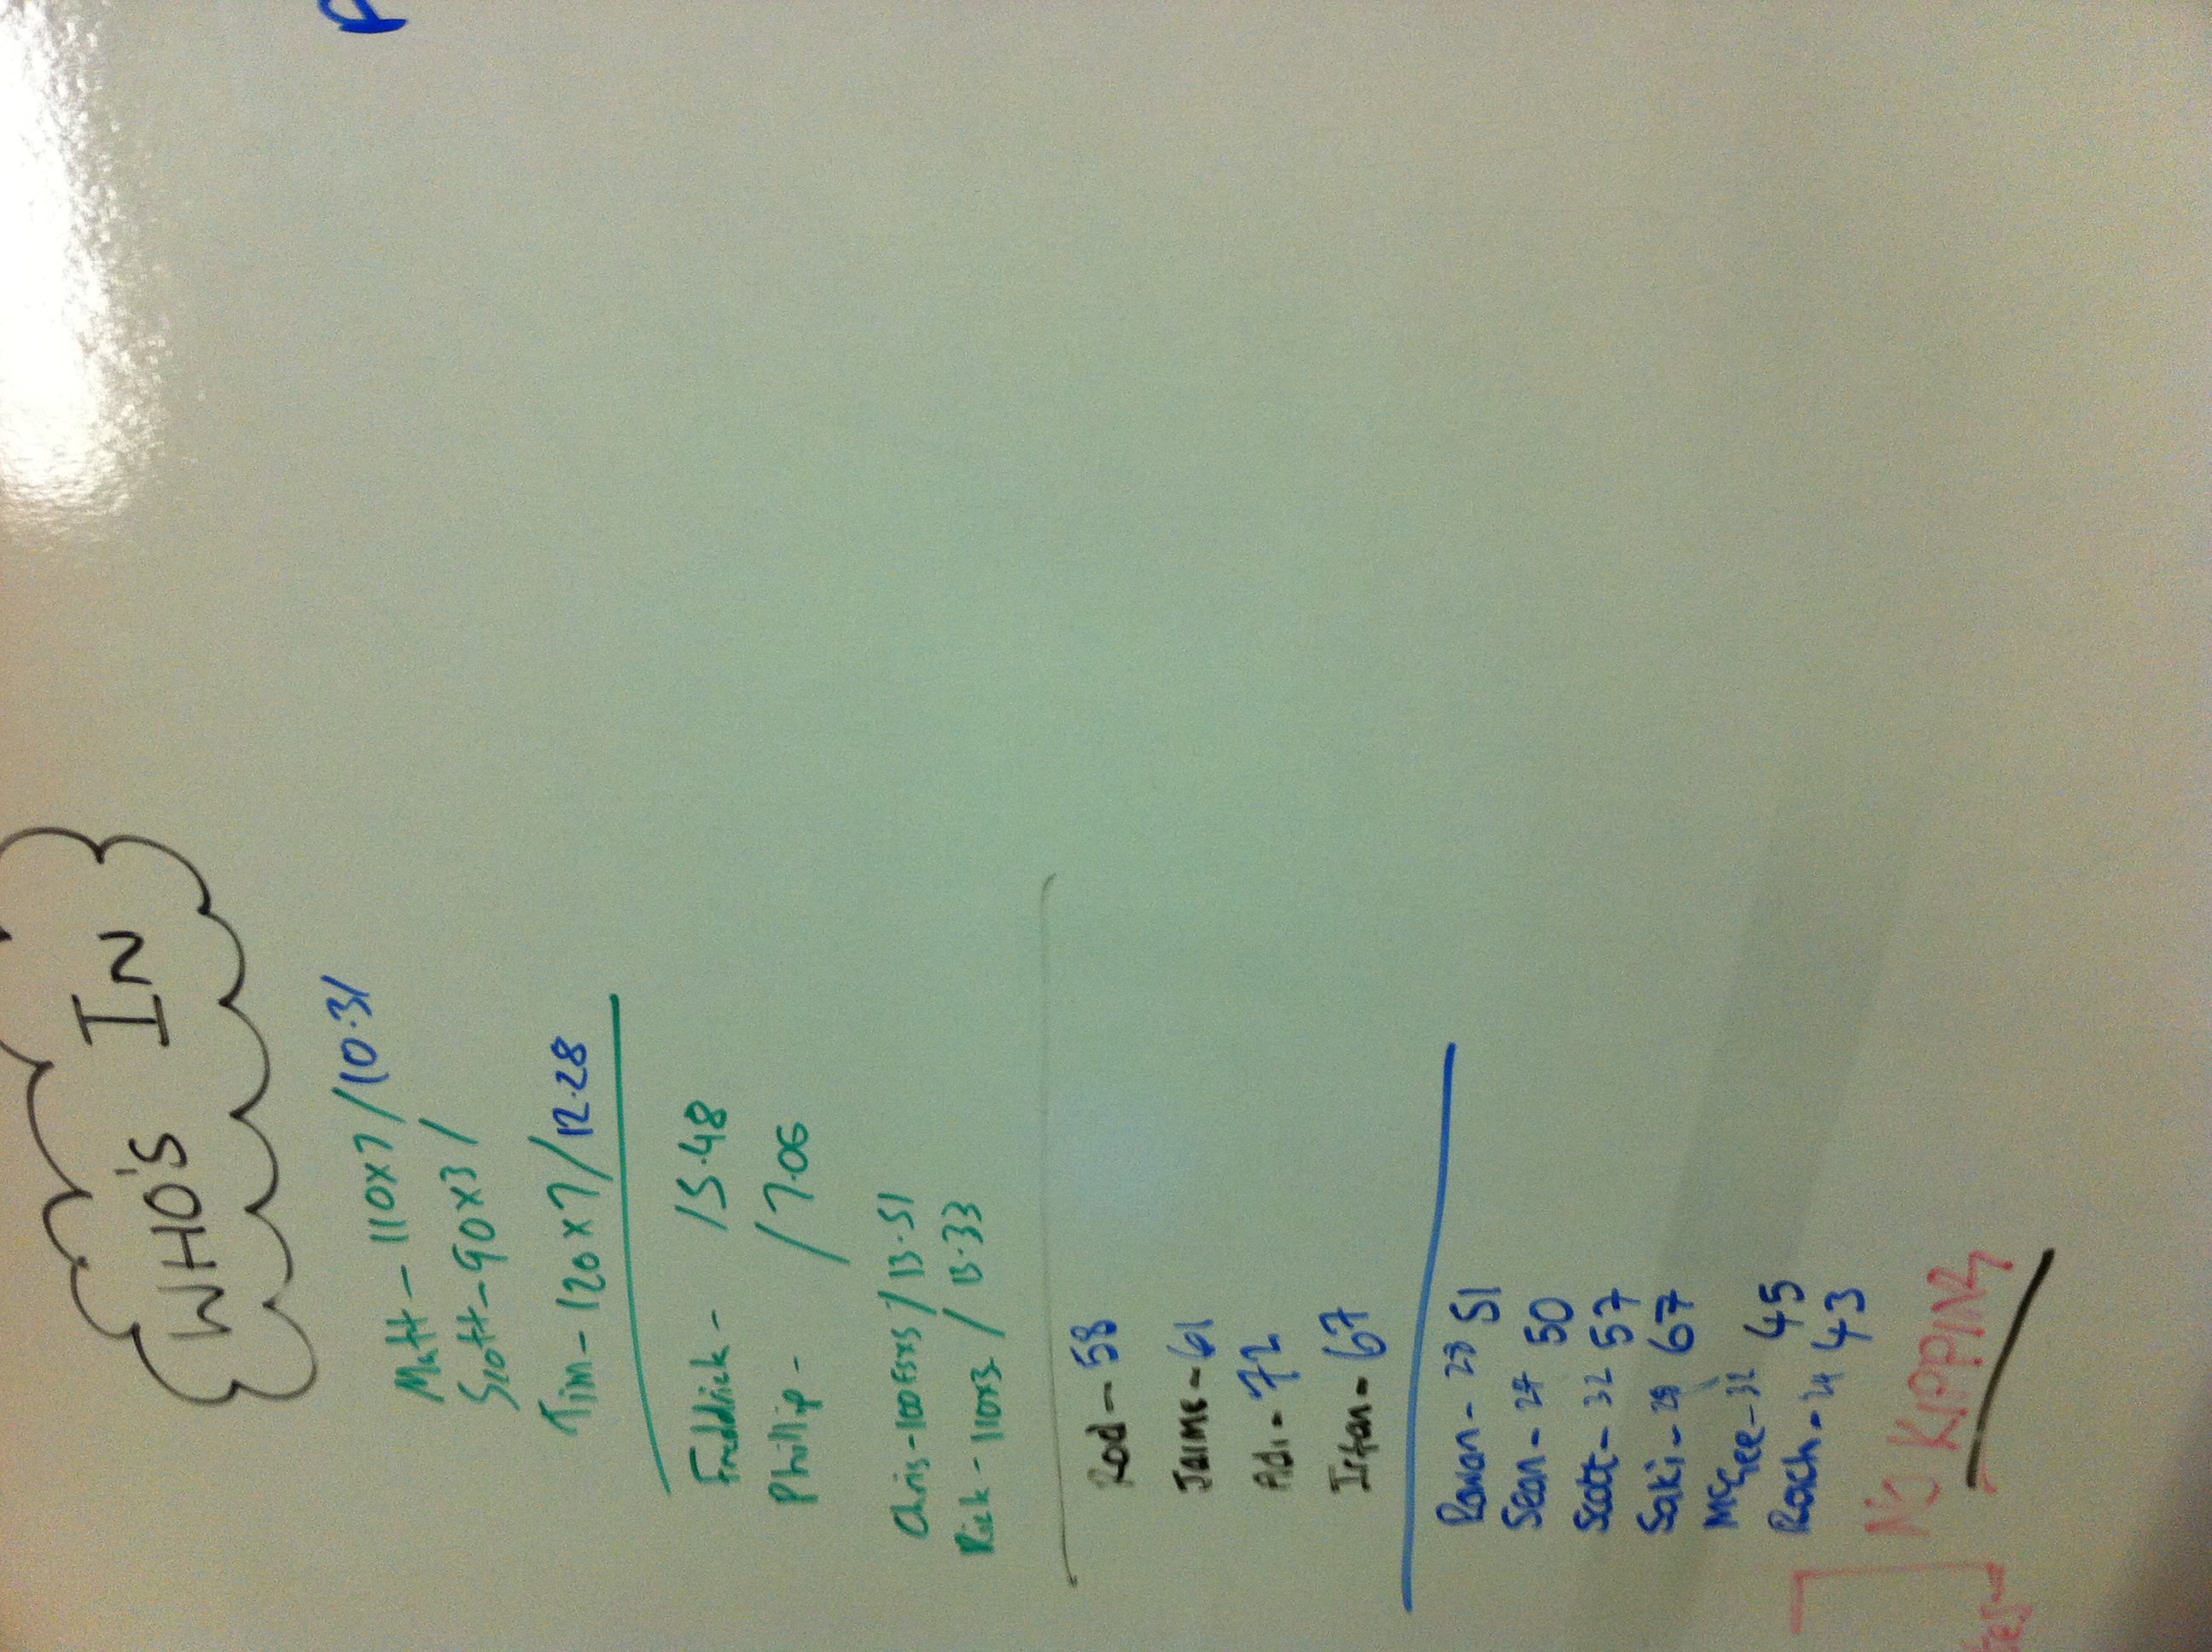 WHO'S IN
Matt - 110x7 / 10.31
Scott - 90x3 /
Tim - 120x7 / 12.28
Freddick - 15.48
Phillip - / 7.06
Chris - 100 / 13.51
Rick - 110x3 / 13.33
Rod - 58
JAIME - 61
Adi - 72
Irfan - 67
Rowan - 28 51
Sean - 27 50
Scott - 32 57
Saki - 29 67
McGee - 32 45
Roach - 24 43
No KIPPING